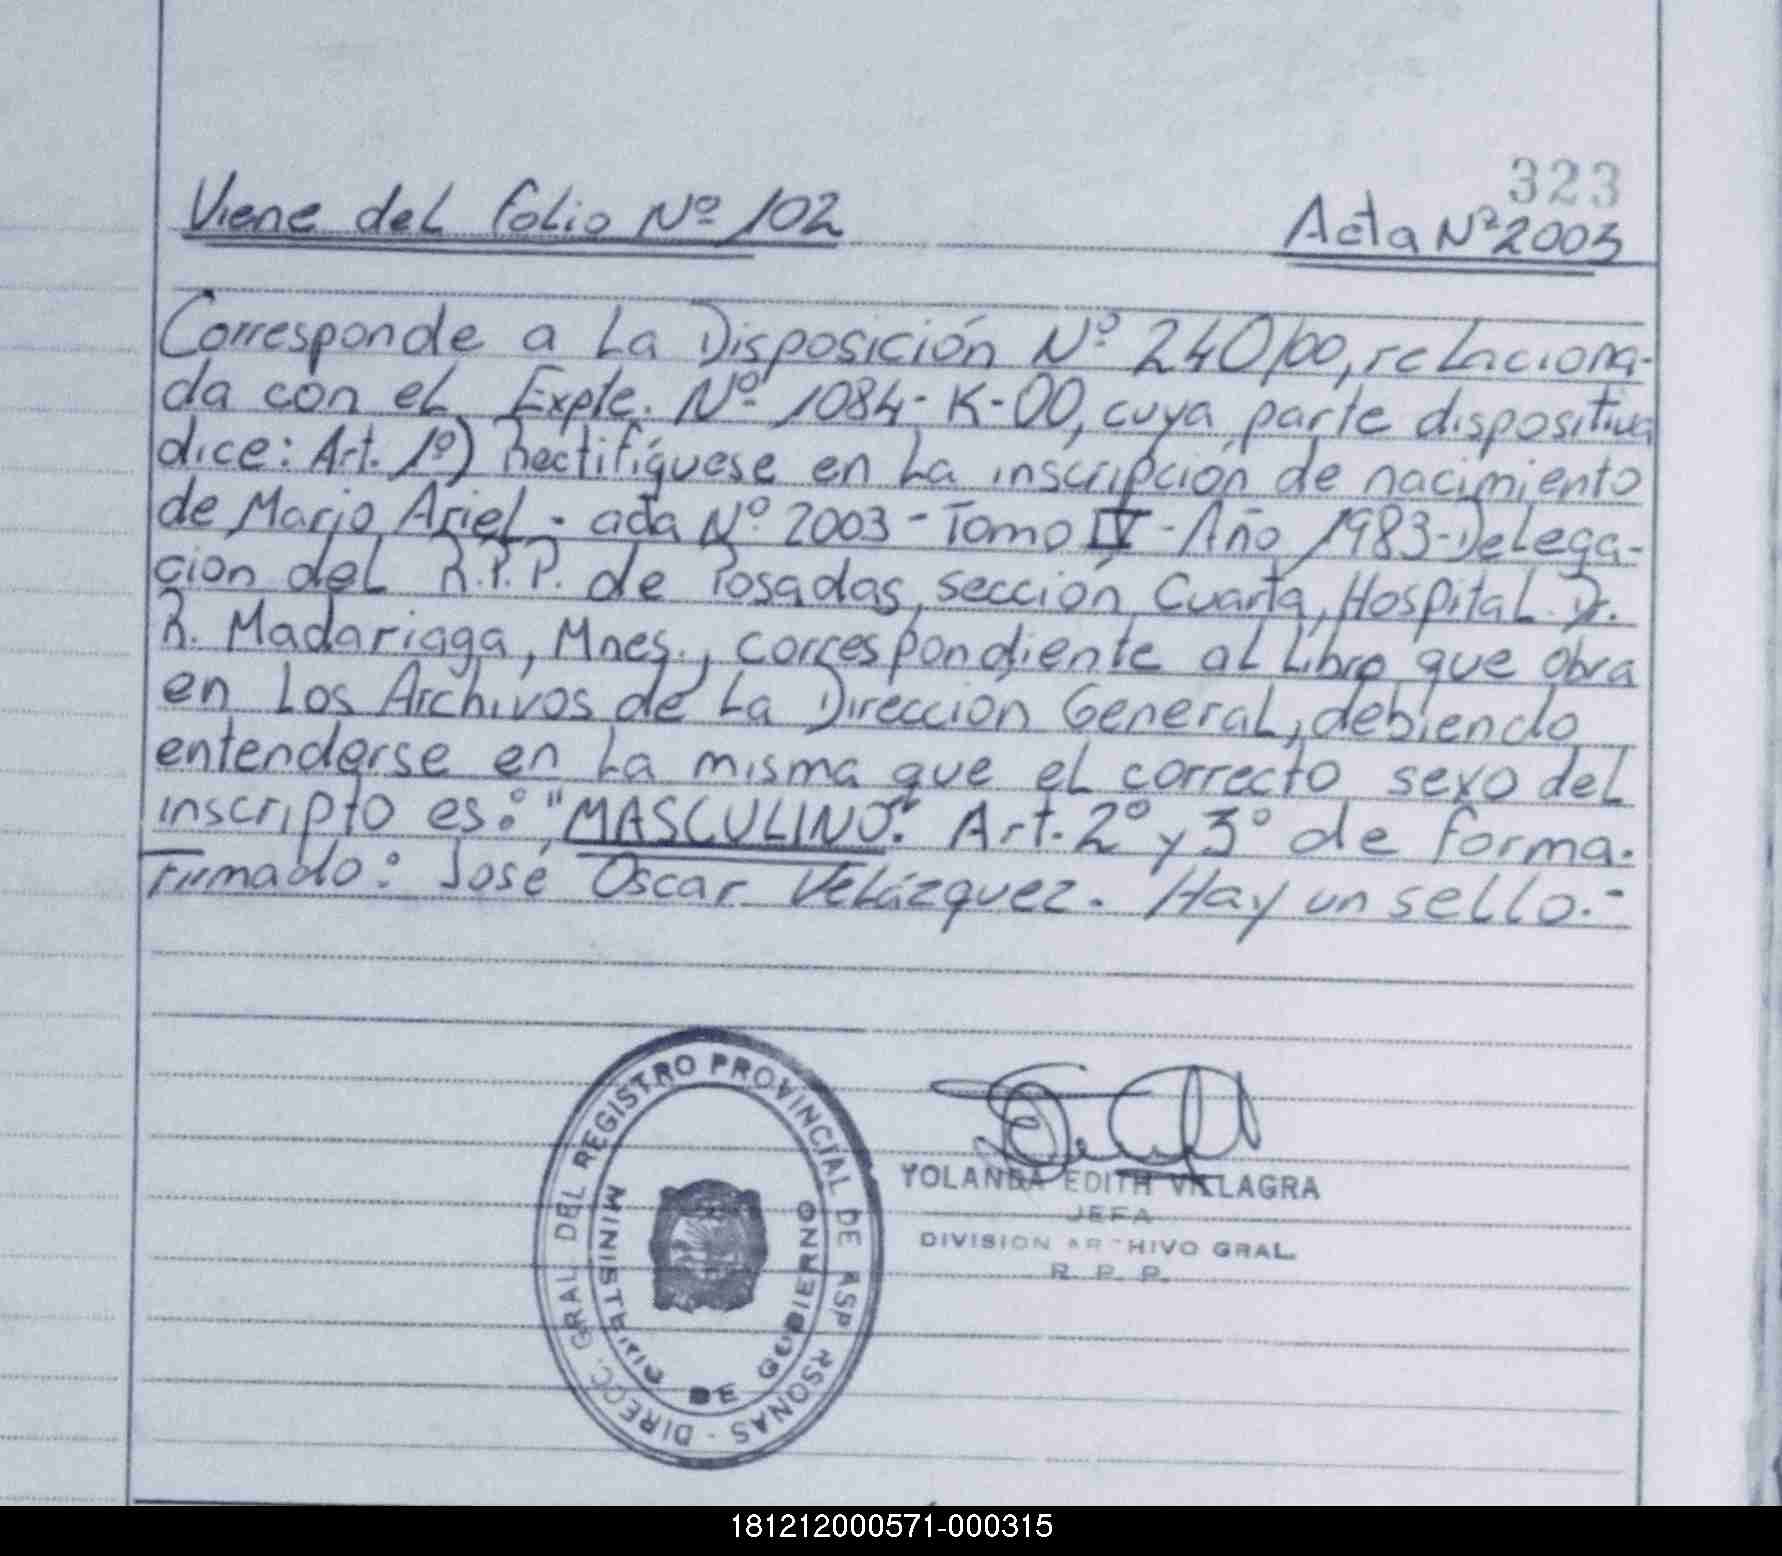 323
Viene del folio Nº 102
Acta Nº 2003
Corresponde a la Disposición Nº 240/00, relaciona-
da con el Expte. Nº 1084-K-00, cuya parte dispositiva
dice: Art. 1º) Rectifíquese en la inscripción de nacimiento
de Mario Ariel - acta Nº 2003 - Tomo IV - Año 1983 - Delega-
cion del R.P.P. de Posadas, sección Cuarta, Hospital Dr.
R. Madariaga, Mnes., correspondiente al Libro que obra
en los Archivos de la Dirección General, debiendo
entenderse en la misma que el correcto sexo del
inscripto es: "MASCULINO". Art. 2º y 3º de forma.
Firmado: José Oscar Velázquez. Hay un sello.-
DIRECC. GRAL DEL REGISTRO PROVINCIAL DE RSONAS
MINIST DE GOBIERNO
YOLANDA EDITH VILLAGRA
JEFA
DIVISION ARCHIVO GRAL.
R. P. P.
181212000571-000315